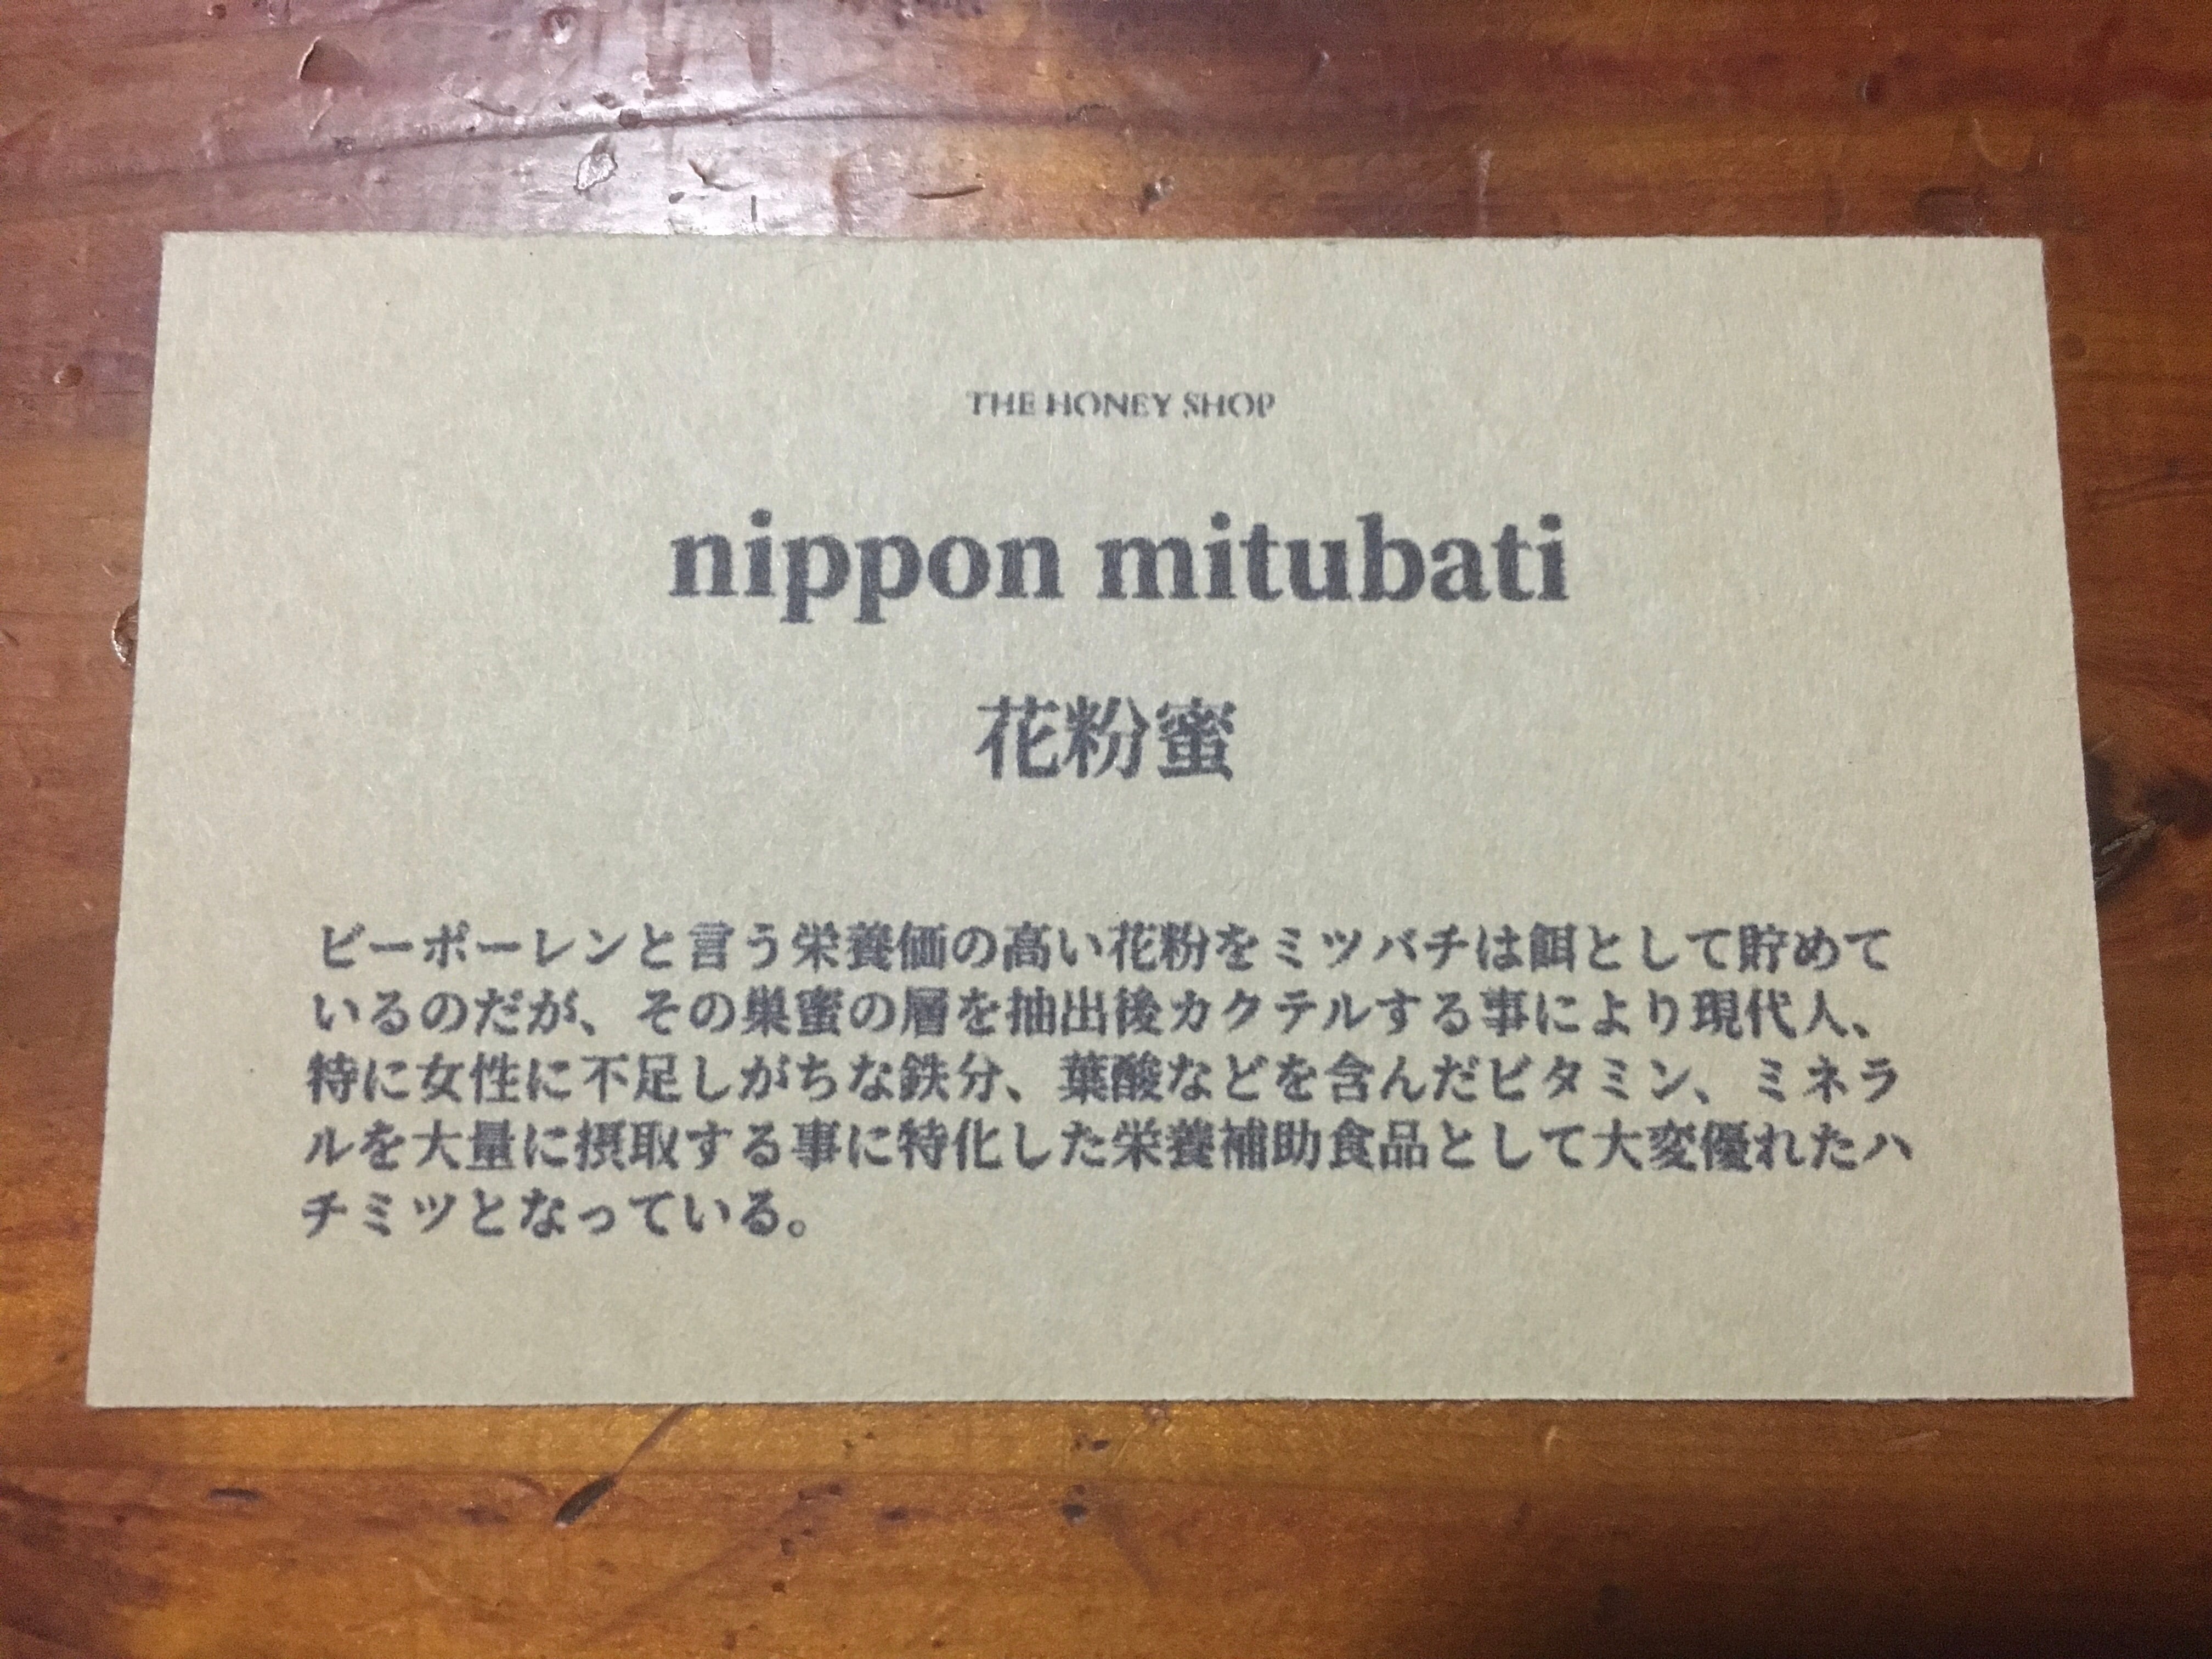 THE HONEY SHOP
nippon mitubati
花粉蜜
ビーポーレンと言う栄養価の高い花粉をミツバチは餌として貯めて
いるのだが、その巣蜜の層を抽出後カクテルする事により現代人、
特に女性に不足しがちな鉄分、葉酸などを含んだビタミン、ミネラ
ルを大量に摂取する事に特化した栄養補助食品として大変優れたハ
チミツとなっている。